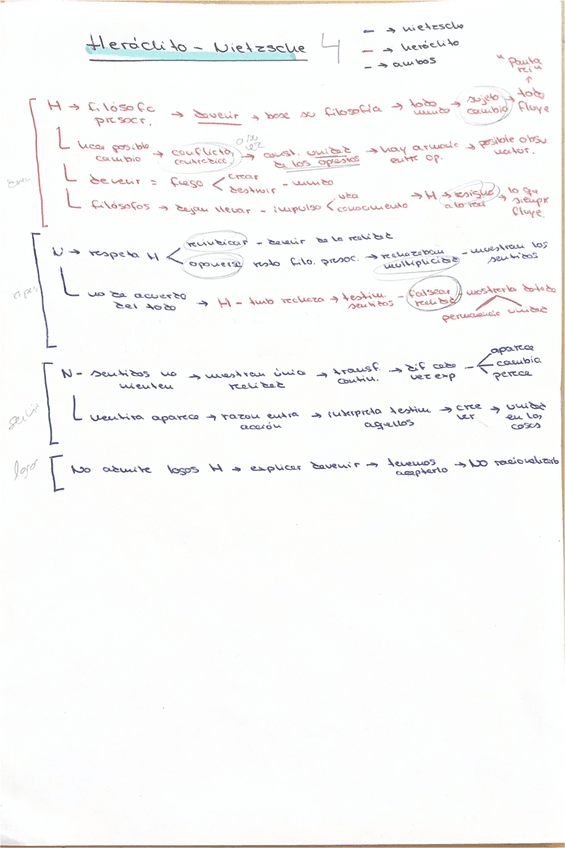 Heráclito - Nietzsche 4
- → nietzsche
- → heráclito
- → ambos
"Panta rei"
H → filósofo presocr. → devenir → base su filosofía → todo mundo → sujeto cambio → todo fluye
hacer posible cambio → conflicto, contradicc → const. unidad de los opuestos → hay armonía entre op. → posible
devenir = fuego < crear destruir - mundo
filósofos → dejan llevar - impulso < conocimiento → H → a lo real → lo que siempre fluye.
N → respeta H < reivindicar - devenir de la realidad
oponerse resto filo. presoc. → rechazaban multiplicidad - muestran los sentidos
no de acuerdo del todo → H - tmb rechaza → testim. sentidos - falsear realidad - mostrarla dotada
permanencia unidad
N - sentidos no mienten → muestran única realidad → transf. contin. → dif cada vez exp - aparece cambia perece
mentira aparece → razon entra acción → interpreta testim aquellos → cree ver → unidad en las cosas
logos
No admite logos H → explicar devenir → tenemos aceptarlo → NO racionalizarlo